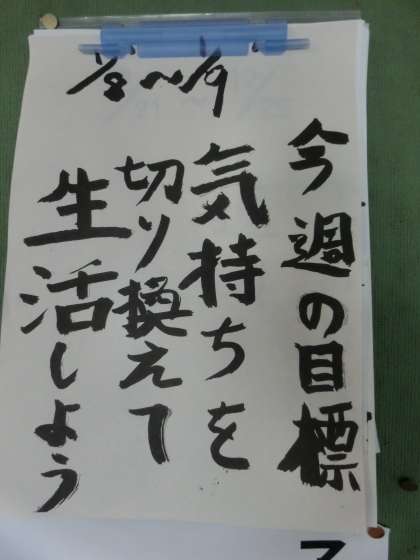 1/8〜1/9
今週の目標
気持ちを
切り換えて
生活しよう